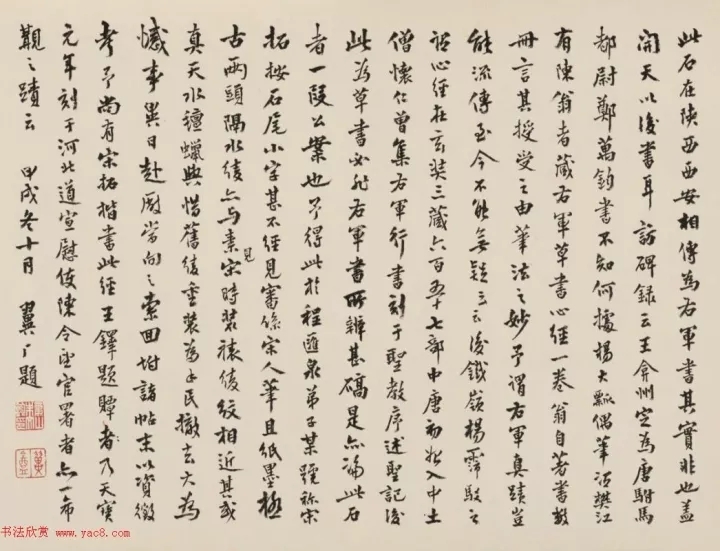 此石在陝西西安相傳為右軍書其實非也蓋
開天以後書耳訪碑錄云王弇州定為唐駙馬
都尉鄭萬鈞書不知何據楊大瓢偶筆活樊江
有陳翁者藏右軍草書心經一卷翁自著書數
冊言其授受之由筆法之妙予謂右軍真蹟豈
能流傳至今不能無疑云云後鐵嶺楊霈駁云
心經在玄奘三藏六百五十七部中唐初始入中土
僧懷仁曾集右軍行書刻于聖教序述聖記後
此為草書必非右軍書所辨甚礭是亦論此石
者一段公案也予得此於程匯泉弟子某號稱宋
拓按石尾小字甚不經見審係宋人筆且紙墨極
古兩頭隔水綾亦与素見宋時裝裱綾紋相近其或
真天水氊蠟與惜舊綾重裝為毛氏撤去大為
憾事異日赴廠當向之索回坿諸帖末以資徵
考予尚有宋拓楷書此經王鐸題
元年刻于河北道宣慰使陳令望官署者亦一希
覯之蹟云 甲戌冬十月 翼厂題
书法欣赏 www.yac8.com